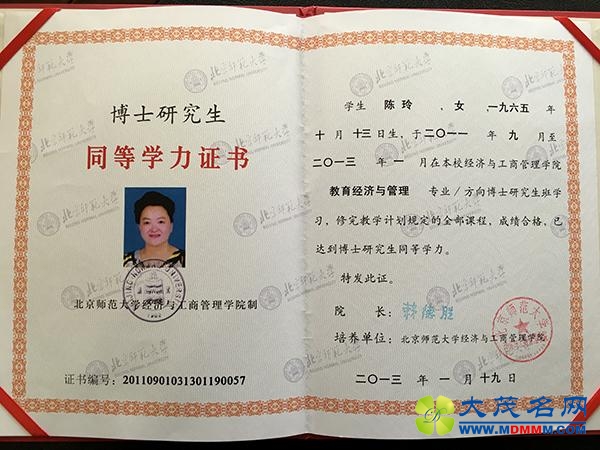 博士研究生
同等学力证书
北京师范大学经济与工商管理学院制
证书编号：20110901031301190057
学生 陈玲 ，女 一九六五年
十月十三日生，于二〇一一年九月至
二〇一三年一月在本校经济与工商管理学院
教育经济与管理 专业/方向博士研究生班学
习，修完教学计划规定的全部课程，成绩合格，已
达到博士研究生同等学力。
特发此证。
院长：韩德胜
培养单位：北京师范大学经济与工商管理学院
二〇一三年一月十九日
大茂名网
WWW.MDMMM.COM